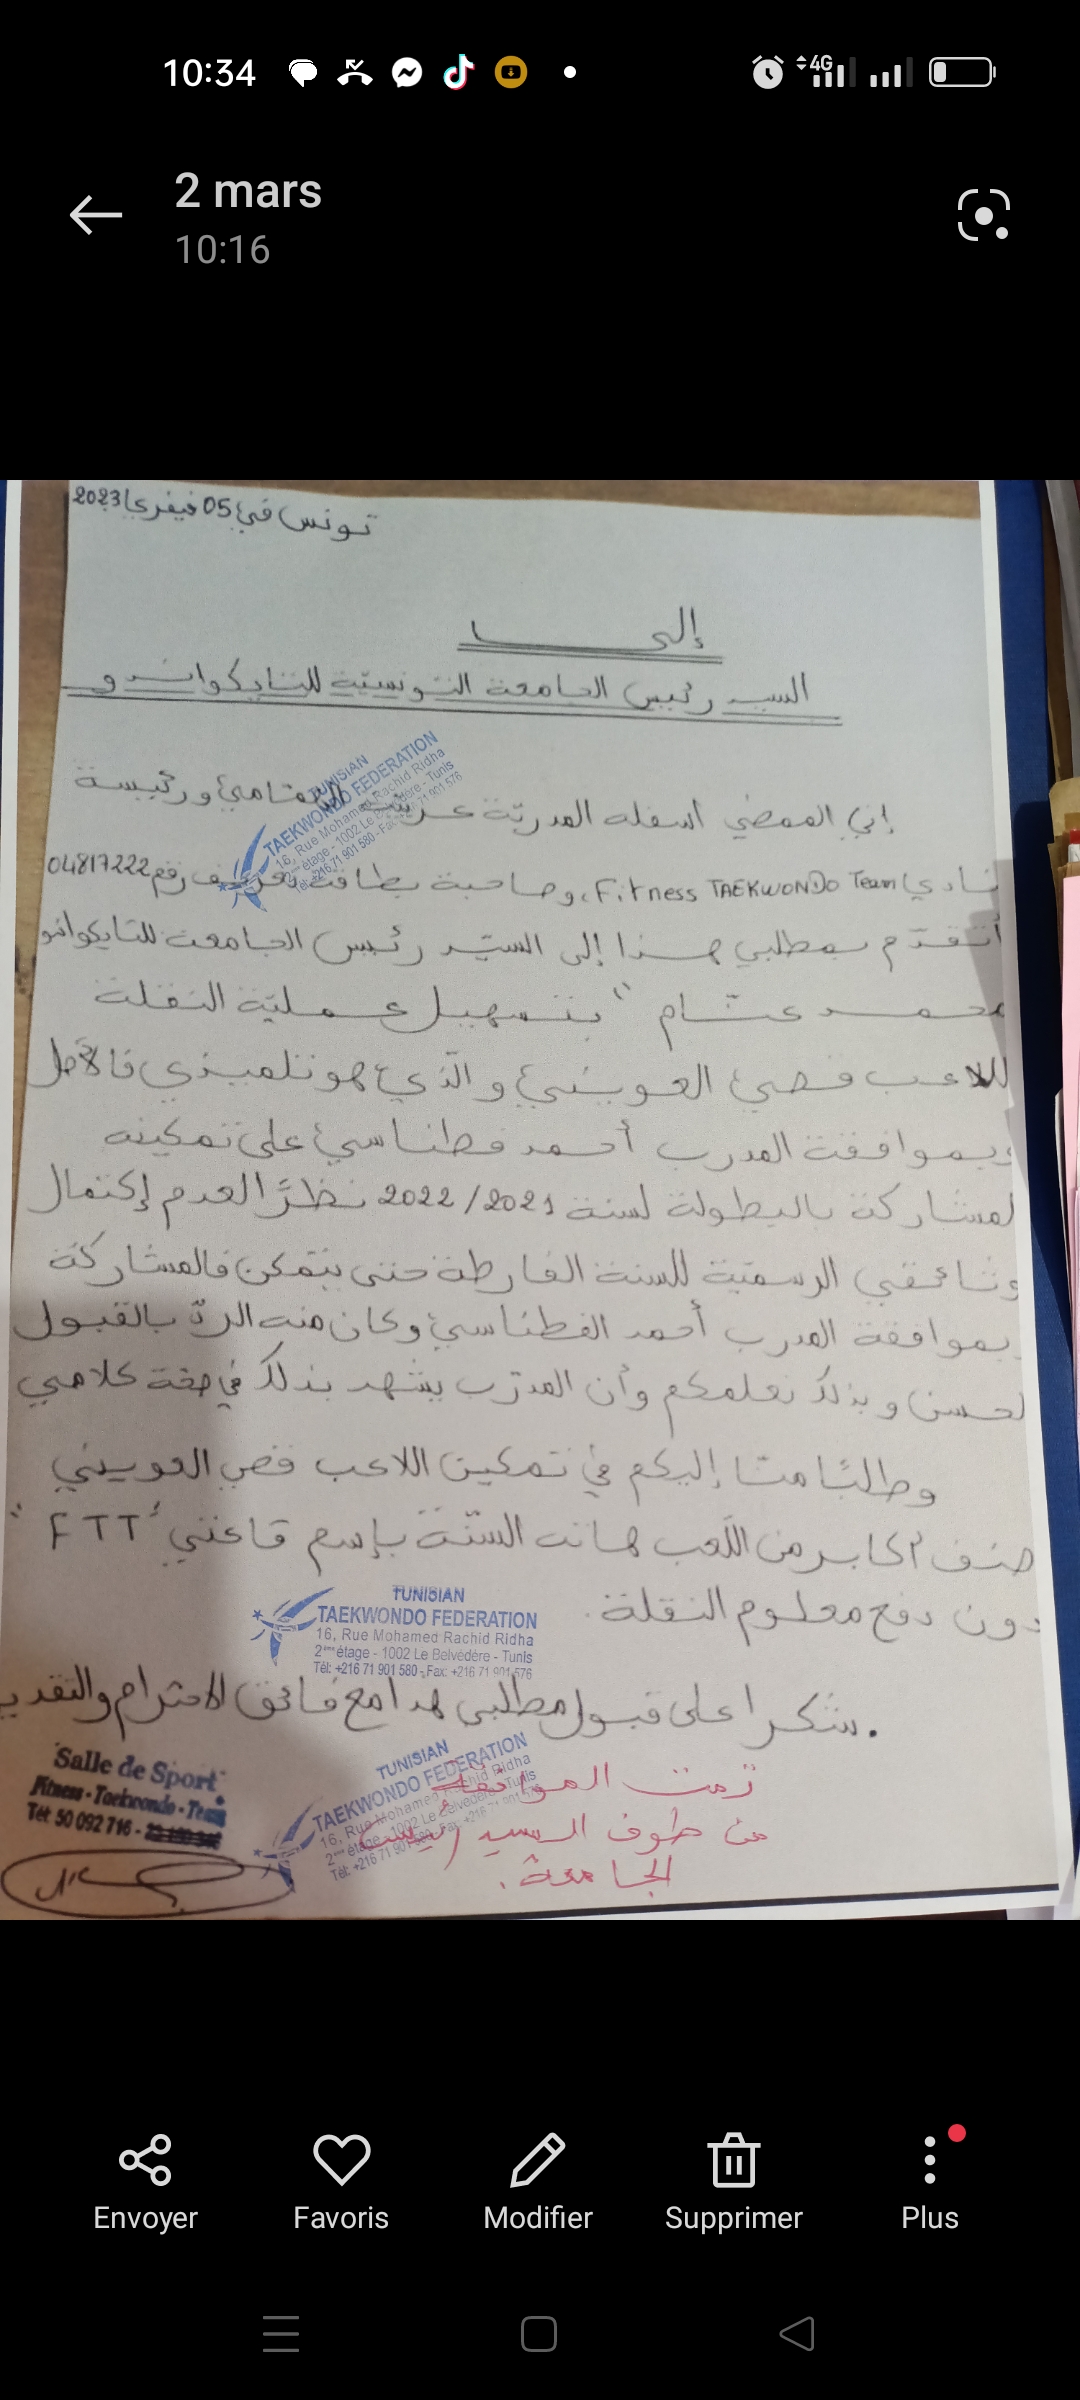 10:34
4G
2 mars
10:16
تونس في 05 فيفري 2023
إلى
السيد رئيس الجامعة التونسية للتايكواندو
إني الممضي أسفله المدربة عربية ورئيسة
نادي Fitness TAEKWONDO Team، وصاحبة بطاقة تعريف رقم 04817222
أتقدم بمطلبي هذا إلى السيد رئيس الجامعة للتايكواندو
محمد عشام " بتسهيل عملية النقلة
للاعب قصي العويني والذي هو تلميذي فالأصل
وبموافقة المدرب أحمد قطناسي على تمكينه
لمشاركة بالبطولة لسنة 2022/2021 نظرًا لعدم إكتمال
وثائقي الرسمية للسنة الفارطة حتى يتمكن فالمشاركة
بموافقة المدرب أحمد القطناسي وكان منه الردّ بالقبول
لحسن وبذلك نعلمكم وأن المدرب يشهد بذلك في صحة كلامي
وطلبًا منا إليكم في تمكين اللاعب قصي العويني
صنف أكابر من اللّعب هاته السنّة بإسم قاعتي "FTT"
دون دفع معلوم النقلة.
شكرا على قبول مطلبي هدا مع فائق الاحترام والتقدير.
تمت الموافقة
من طرف السيد رئيس
الجامعة.
TUNISIAN
TAEKWONDO FEDERATION
16, Rue Mohamed Rachid Ridha
2ème étage - 1002 Le Belvédère - Tunis
Tél: +216 71 901 580 - Fax: +216 71 901 576
TUNISIAN
TAEKWONDO FEDERATION
16, Rue Mohamed Rachid Ridha
2ème étage - 1002 Le Belvédère - Tunis
Tél: +216 71 901 580 - Fax: +216 71 901 576
TUNISIAN
TAEKWONDO FEDERATION
16, Rue Mohamed Rachid Ridha
2ème étage - 1002 Le Belvédère - Tunis
Tél: +216 71 901 580 - Fax: +216 71 901
Salle de Sport
Fitness - Taekwondo - Team
Tél: 50 092 716 -
Envoyer
Favoris
Modifier
Supprimer
Plus